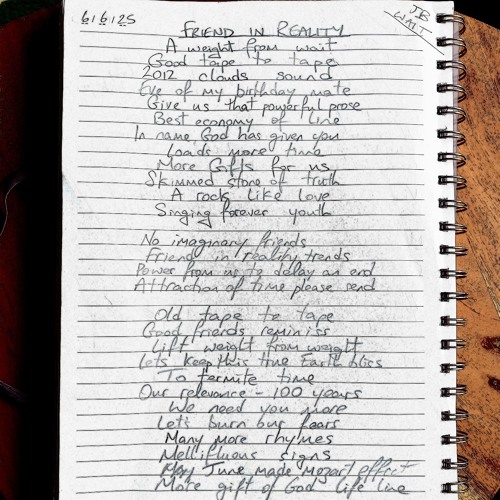 6/6/25
JB
WAIT
FRIEND IN REALITY
A weight from wait
Good tape to tape
2012 clouds sound
Eve of my birthday mate
Give us that powerful prose
Best economy of line
In name God has given you
Loads more time
More Gifts for us
Skimmed stone of truth
A rock like love
Singing forever youth
No imaginary friends
Friend in reality trends
Power from us to delay an end
Attraction of time please send
Old tape to tape
Good friends reminiss
Lift weight from weight
Lets keep this true Earth bliss
To termite time
Our relevance - 100 years
We need you more
Let's burn our fears
Many more rhymes
Mellifluous signs
May June made Mozart effect
More gift of God life line